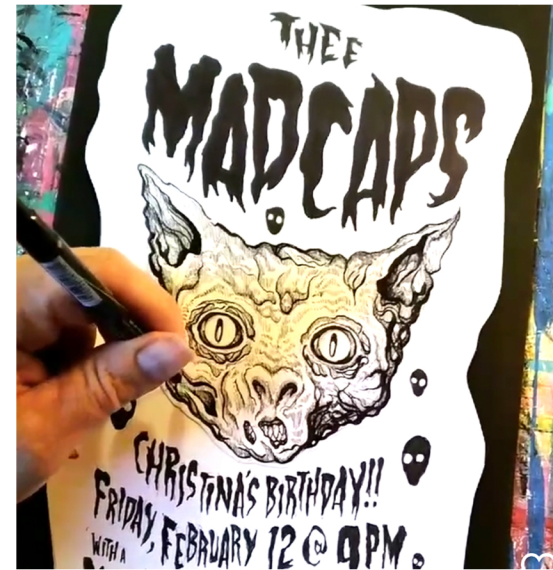 THEE
MADCAPS
CHRISTINA'S BIRTHDAY!!
FRIDAY, FEBRUARY 12 @ 9PM
WITH A